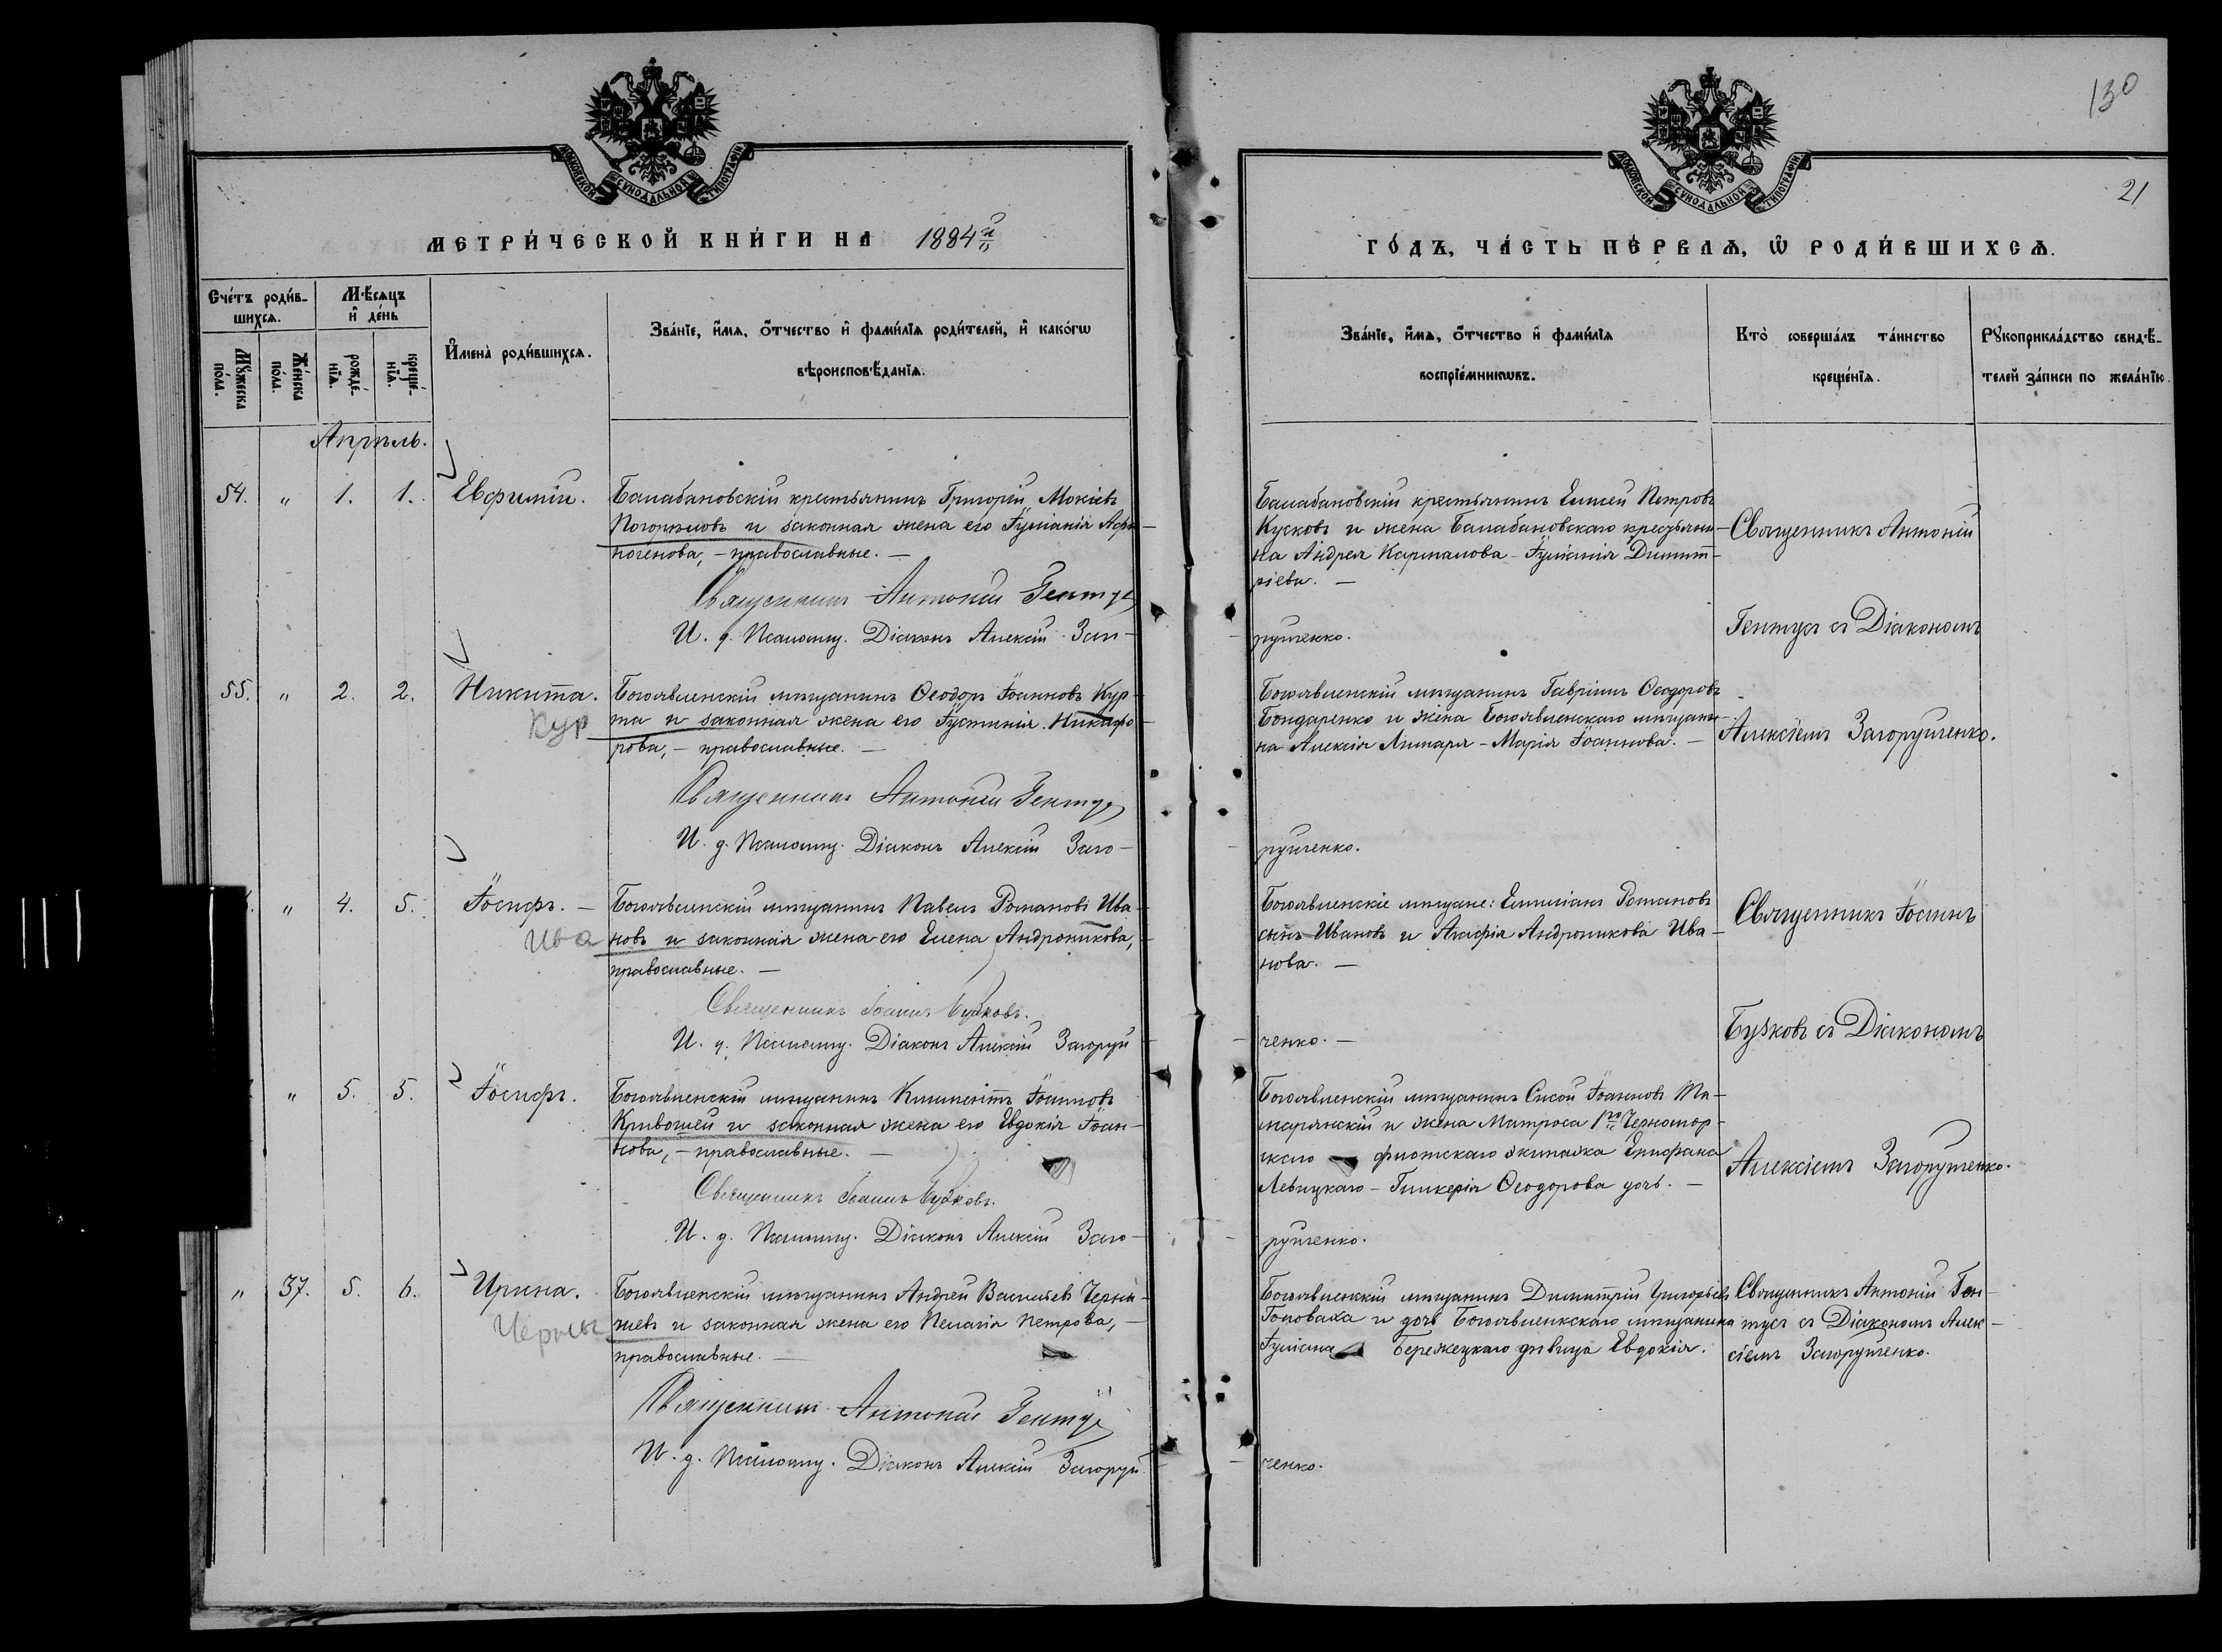 130
21
МОСКОВСКОЙ СѴНОДАЛЬНОЙ ТИПОГРАФІИ
МОСКОВСКОЙ СѴНОДАЛЬНОЙ ТИПОГРАФІИ
МЕТРИ́ЧЕСКОЙ КНИ́ГИ НА 1884й
ГО́ДЪ, ЧА́СТЬ ПЕ́РВАѦ, Ѡ҆ РОДИ́ВШИХСѦ.
Сче́тъ роди́в-
шихсѧ.
Мѣ́сѧцъ
и҆ де́нь
Мꙋ́жеска
по́ла.
Же́нска
по́ла.
рожде́-
нїѧ.
креще́-
нїѧ.
И҆мена̀ роди́вшихсѧ.
Зва́нїе, и҆́мѧ, ѻ҆́тчество и҆ фами́лїѧ роди́телей, и҆ како́гѡ
вѣроисповѣ́данїѧ.
Зва́нїе, и҆́мѧ, ѻ҆́тчество и҆ фами́лїѧ
воспрїе́мникѡвъ.
Кто̀ соверша́лъ та́инство
креще́нїѧ.
Рꙋкоприкла́дство свидѣ́-
телей за́писи по жела́нїю.
Апрѣль.
54. " 1. 1. Евфимій.
Балабановскій крестьянинъ Григорій Мокіевъ
Погорѣловъ и законная жена его Іуліанія Афи-
ногенова, – православные. –
Священникъ Антоній Гентус
И. д. Псаломщ. Діаконъ Алексій Заго-
Балабановскій крестьянинъ Елисей Петровъ
Кусковъ и жена Балабановскаго крестьяни-
на Андрея Карпалова – Іуліанія Димит-
ріева. –
руйченко.
Священникъ Антоній
Гентусъ съ Діакономъ
55. " 2. 2. Никита.
Кур
Богоявленскій мѣщанинъ Ѳеодоръ Іоанновъ Кур-
та и законная жена его Іустинія Никифо-
рова, – православные. –
Священникъ Антоній Гентус
И. д. Псаломщ. Діаконъ Алексій Заго-
Богоявленскій мѣщанинъ Гавріилъ Ѳеодоровъ
Бондаренко и жена Богоявленскаго мѣщани-
на Алексія Лымаря – Марія Іоаннова. –
руйченко.
Алексіемъ Загоруйченко.
" 4. 5. Іосифъ. –
Ива
Богоявленскій мѣщанинъ Павелъ Романовъ Ива-
новъ и законная жена его Елена Андроникова,
православные. –
Священникъ Іоаннъ Бузковъ.
И. д. Псаломщ. Діаконъ Алексій Загоруй-
Богоявленскіе мѣщане: Емиліанъ Романовъ
сынъ Ивановъ и Агафія Андроникова Ива-
нова. –
ченко. –
Священникъ Іоаннъ
Бузковъ съ Діакономъ
" 5. 5. Іосифъ.
Богоявленскій мѣщанинъ Климентъ Іоанновъ
Кривошей и законная жена его Евдокія Іоан-
нова, – православные. –
Священникъ Іоаннъ Бузковъ.
И. д. Псаломщ. Діаконъ Алексій Заго-
Богоявленскій мѣщанинъ Сисой Іоанновъ Та-
марянскій и жена Матроса 1го Черномор-
скаго флотскаго экипажа Епифана
Левицкаго – Гликерія Ѳеодорова дочь. –
руйченко.
Алексіемъ Загоруйченко.
" 37. 5. 6. Ирина.
Черны
Богоявленскій мѣщанинъ Андрей Васильевъ Черны-
шевъ и законная жена его Пелагія Петрова, –
православные. –
Священникъ Антоній Гентус
И. д. Псаломщ. Діаконъ Алексій Загоруй-
Богоявленскій мѣщанинъ Димитрій Григорьевъ
Головаха и дочь Богоявленкскаго мѣщанина
Іуліана Бережецкаго дѣвица Евдокія.
ченко.
Священникъ Антоній Ген-
тусъ съ Діакономъ Алек-
сіемъ Загоруйченко.